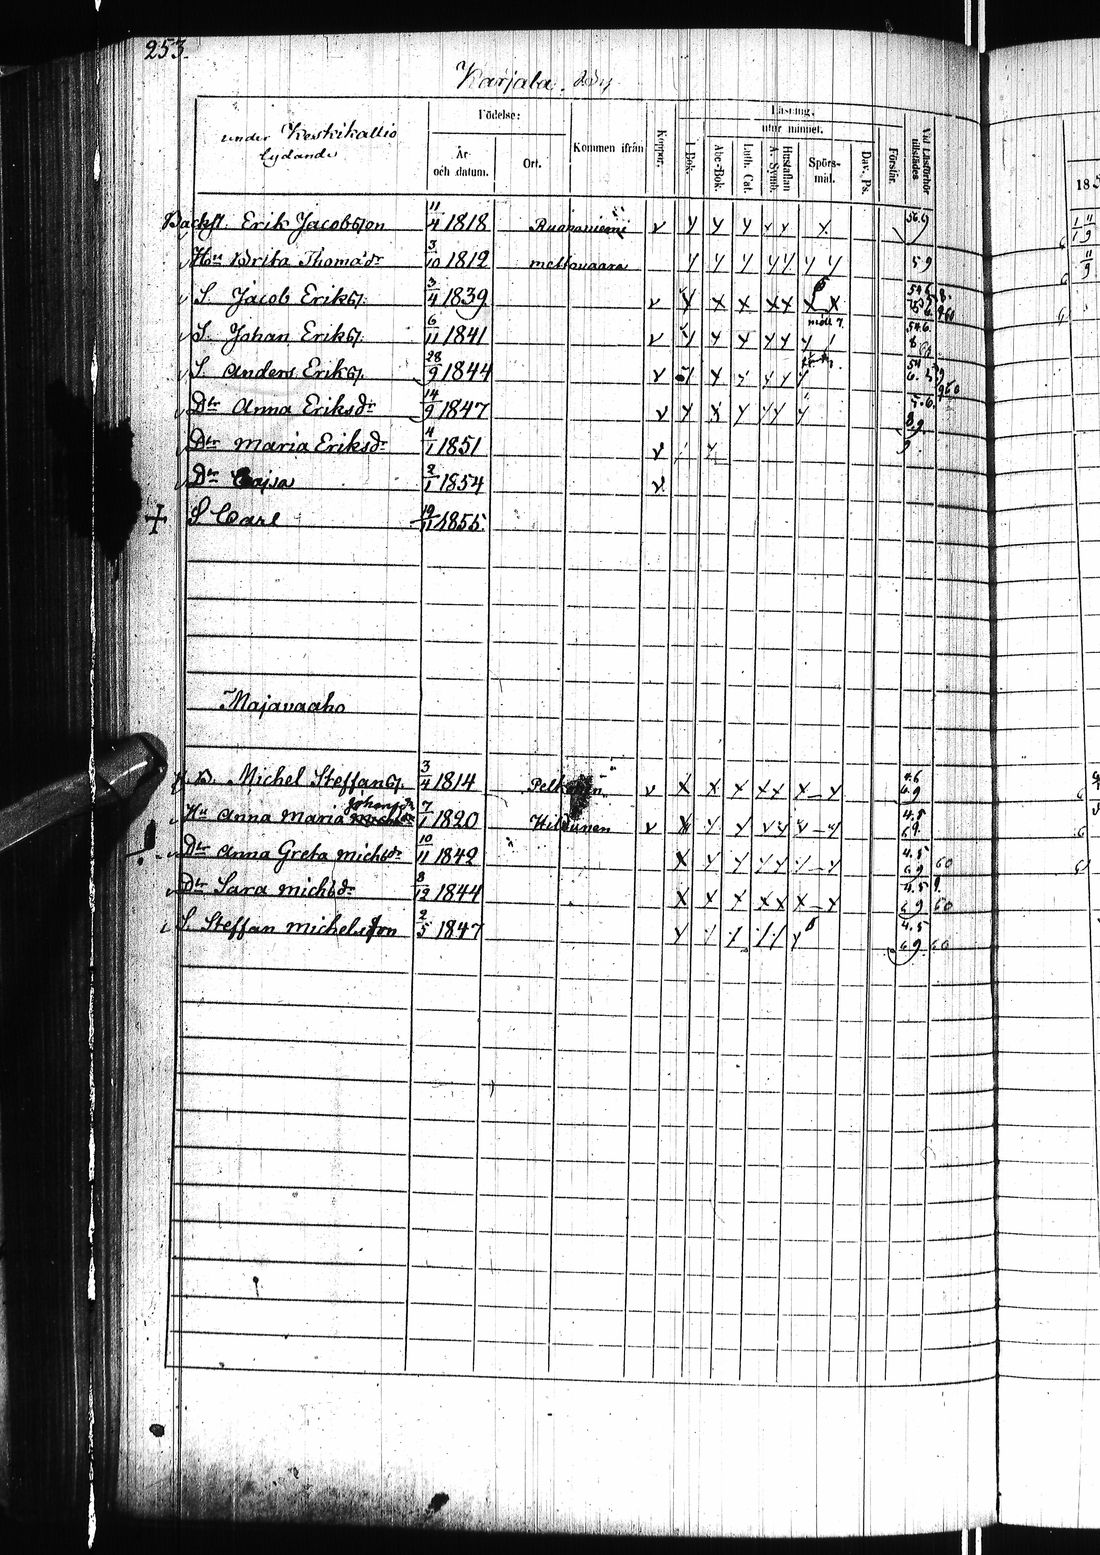 253.
Karjala. By
under Keskikallio lydande
Födelse:
År och datum.
Ort.
Kommen ifrån
Koppor.
Läsning,
utur minnet.
I Bok.
Abc-Bok.
Luth. Cat.
Hustaflan A. Symb.
Spörs-mål.
Dav. Ps.
Förstår.
Vid Läsförhör tillstädes
185
Backst. Erik Jacobsson 11/4 1818 v y y y y y y 56.9
Hu Brita Thomasdr 3/10 1812 mettovaara y y y y y y y 59
S. Jacob Eriks. 3/4 1839 v x x x x x x x
S. Johan Eriks. 6/11 1841 v y y x y y y
S. Anders Eriks. 28/9 1844 v y y y y y
Dtr Anna Eriksdr 14/9 1847 v y x y y y y
Dtr Maria Eriksdr 4/1 1851 v 9
Dtr Cajsa 2/1 1854 v
S Carl 19/11 1855.
Majavaaho
Michel Steffans. 3/4 1814 v x x x x x x - x 4.6 6.9
Hu Anna Maria Johansdr 7/1 1820 Hiltunen v x y y y y y - y 4.5 6 9.
Dtr Anna Greta Michsdr 10/11 1842 x y y y y y - y 4.5 6 9 60
Dtr Sara Michsdr 8/12 1844 x x x x x x - x 4.5 9. 6 9 60
S. Steffan Michelsson 2/5 1847 y y y y y y 4.5 6 9 60